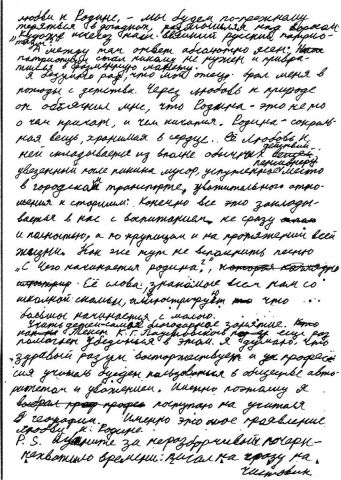 любви к Родине, – мы будем по-прежнему
теряться в догадках, размышляя над вопросом:
"Куда же исчез наш великий русский патрио-
тизм"
А между тем ответ абсолютно ясен:
патриотизм стал никому не нужен и превра-
тился в
Я безумно рад, что мой отец брал меня в
походы с детства. Через любовь к природе
он объяснил мне, что Родина – это не то
о чём кричат, и чем кичатся. Родина – сакраль-
ная вещь, хранимая в сердце. Её любовь к
ней складывается из вполне обычных действий:
увезенный после пикника мусор, уступленное пенсионеру место
в городском транспорте, уважительного отно-
шения к старшим. Конечно все это заклады-
вается в нас с воспитанием, не сразу
и полностью, а по крупицам и на протяжении всей
жизни. Как же тут не вспомнить песню
"С чего начинается родина?",
Её слова знакомые всем нам со
школьной скамьи, иллюстрируют что
большое начинается с малого.
Учитель – благодарное занятие.
Текст К.Г. Паустовского ещё раз
помогает убедиться в этом. Я думаю что
здравый разум восторжествует и профес-
сия учитель будет пользоваться в обществе авто-
ритетом и уважением. Именно поэтому я
выбрал поступаю на учителя
географии. Именно это мое проявление
любви к Родине.
P.S. Извините за неразборчивый почерк–
нехватило времени: писал на сразу на
чистовик